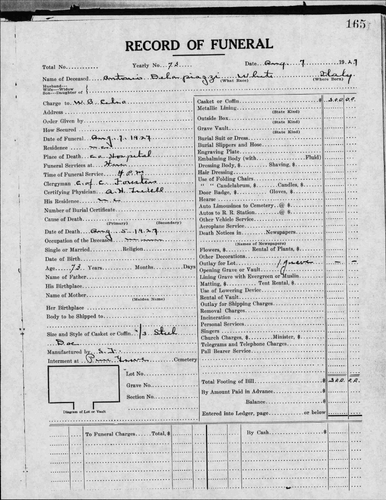 165
RECORD OF FUNERAL
Total No. Yearly No. 73 Date Aug. 9 1929
Name of Deceased Antonio White Italy
(What Race) (Where Born)
Husband—
Wife—Widow
Son—Daughter of
Charge to W. B.
Address
Order Given by
How Secured
Date of Funeral Aug. 9. 1929
Residence
Place of Death Co Hospital
Funeral Services at Home
Time of Funeral Service
Clergyman C. of C.
Certifying Physician
His Residence
Number of Burial Certificate
Cause of Death
(Primary) (Secondary)
Date of Death Aug 5. 1929
Occupation of the Deceased
Single or Married Religion
Date of Birth
Age 73 Years Months Days
Name of Father
His Birthplace
Name of Mother
(Maiden Name)
Her Birthplace
Body to be Shipped to
Size and Style of Casket or Coffin
Manufactured by
Interment at Pine Cemetery
Lot No.
Grave No.
Section No.
Diagram of Lot or Vault
Casket or Coffin $
Metallic Lining
(State Kind)
Outside Box
(State Kind)
Grave Vault
(State Kind)
Burial Suit or Dress
Burial Slippers and Hose
Engraving Plate
Embalming Body (with Fluid)
Dressing Body, $ Shaving, $
Hair Dressing
Use of Folding Chairs
" " Candelabrum, $ Candles, $
Door Badge, $ Gloves, $
Hearse
Auto Limousines to Cemetery @ $
Autos to R. R. Station @ $
Other Vehicle Service
Aeroplane Service
Death Notices in Newspapers
(Names of Newspapers)
Flowers, $ Rental of Plants, $
Other Decorations
Outlay for Lot
Opening Grave or Vault
Lining Grave with Evergreen or Muslin
Matting, $ Tent Rental, $
Use of Lowering Device
Rental of Vault
Outlay for Shipping Charges
Removal Charges
Incineration
Personal Services
Singers
Church Charges, $ Minister, $
Telegrams and Telephone Charges
Pall Bearer Service
Total Footing of Bill $
By Amount Paid in Advance $
Balance $
Entered into Ledger, page or below
To Funeral Charges Total, $ By Cash $